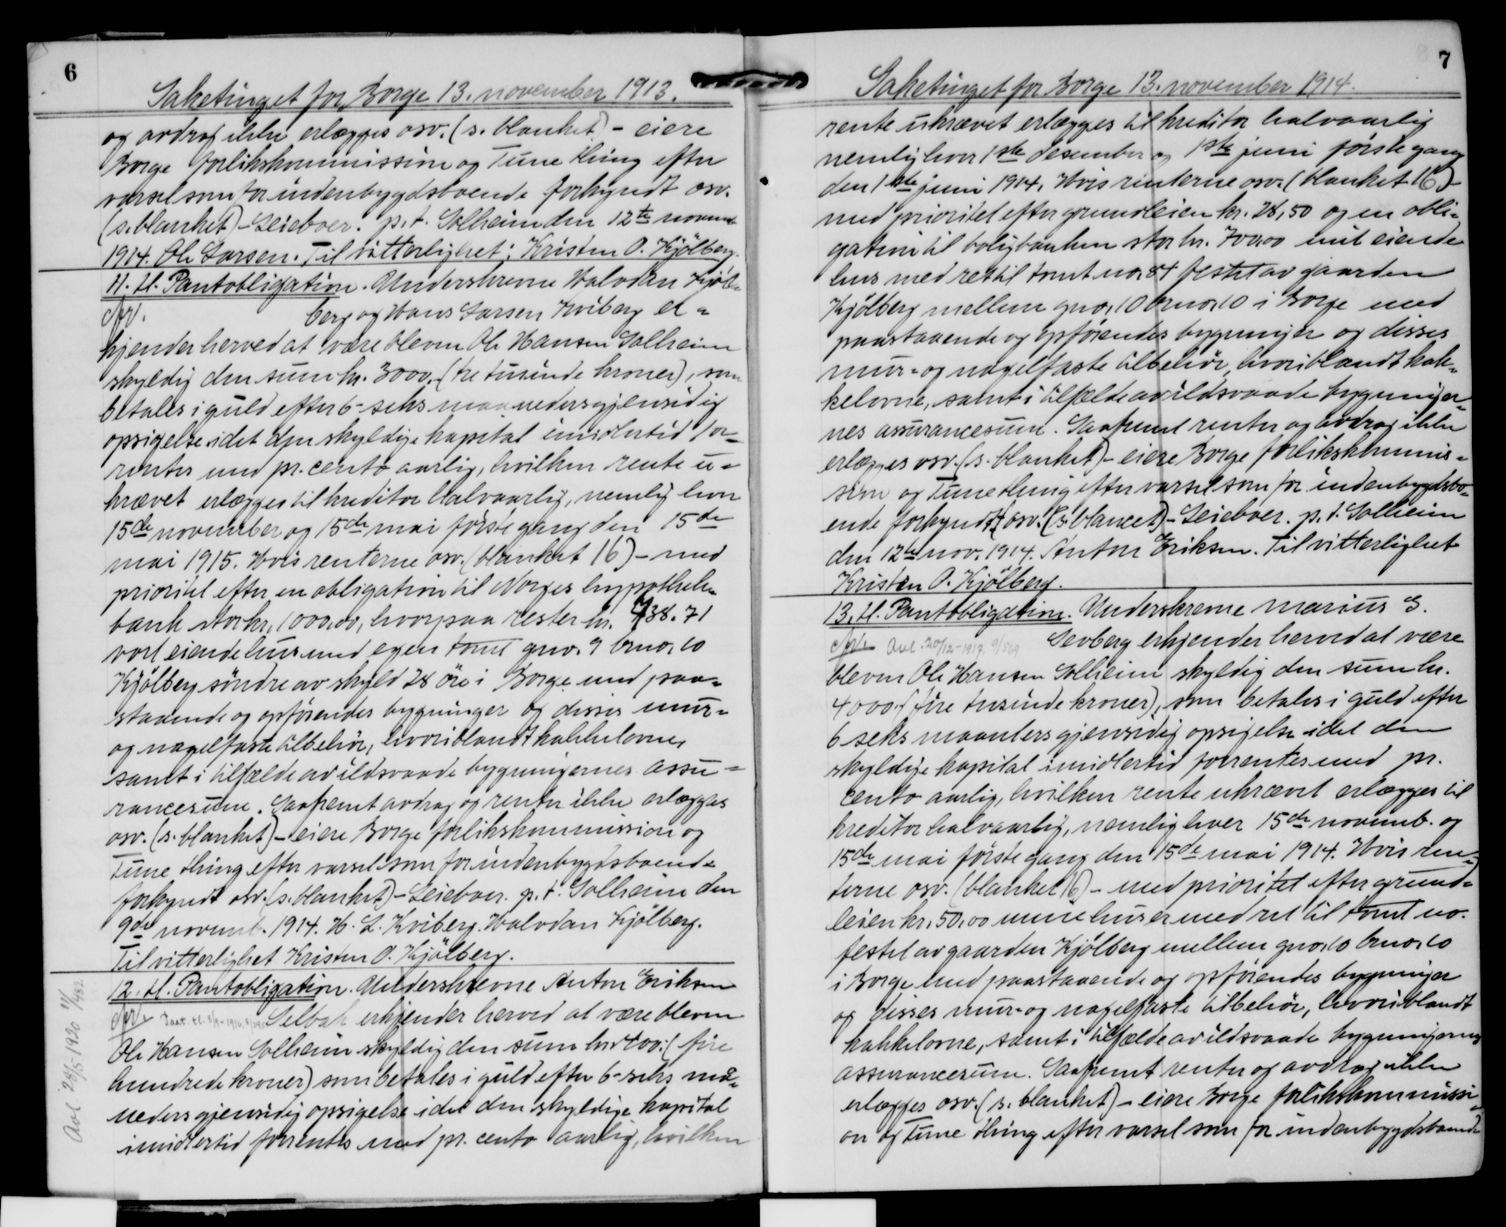 6
Saketinget for Borge 13. november 1913.
og avdrag ikke erlægges osv. (s. blanket) - eiere
Borge forlikskommission og Tune thing efter
varsel som for indenbygdsboende forkyndt osv.
(s. blanket) - Leieboer. p.t. Solheim den 12te novem
1914. Ole Larsen. Til vitterlighet: Kristen O. Kjölberg.
11. tl. Pantobligation. Underskrevne Halvdan Kjöl-
berg og Hans Larsen Kviberg er-
kjender herved at være bleven Ole Hansen Solheim
skyldig den sum kr. 3000. (tre tusinde kroner), som
betales i guld efter 6- seks maanedersgjensidig
opsigelse idet den skyldige kapital imidlertid for-
rentes med pr. cento aarlig, hvilken rente u-
krævet erlægges til kreditor halvaarlig, nemlig hver
15de november og 15de mai förste gang den 15de
mai 1915. Hvis renterne osv. (blanket 16) - med
prioritet efter en obligation til Norges hypothek-
bank stor kr. 1000,00, hvorpaa rester kr. 938.71
vort eiende hus med egen tomt gno. 9 bno. 10
Kjölberg söndre av skyld 28 öre i Borge med paa-
staaende og opförendes bygninger og disses mur-
og nagelfaste tilbehör, hvoriblandt kakkelovne,
samt i tilfælde av ildsvaade bygningernes assu-
rancesum. Saafremt avdrag og renter ikke erlægges
osv. (s. blanket) - eiere Borge forlikskommission og
Tune thing efter varsel som for indenbygdsboende
forkyndt osv. (s. blanket) - Leieboer. p.t. Solheim den
9de novemb. 1914. H. L. Kviberg. Halvdan Kjölberg.
Til vitterlighet Kristen O. Kjölberg.
12. tl. Pantobligation. Underskrevne Anton Eriksen
Selbak erkjender herved at være bleven
Ole Hansen Solheim skyldig den sum kr. 400. (fire
hundrede kroner) som betales i guld efter 6-seks må-
neders gjensidig opsigelse idet den skyldige kapital
imidlertid forrentes med pr. cento aarlig, hvilken
Avl 28/5-1920
7
Saketinget for Borge 13. november 1914.
rente ukrævet erlægges til kreditor halvaarlig
nemlig hver 1ste desember og 1ste juni förste gang
den 1ste juni 1914. Hvis renterne osv. (blanket 16) -
med prioritet efter grundleien kr. 28,50 og en obli-
gation til boligbanken stor kr. 700,00 mit eiende
hus med ret til tomt no. 84 festet av gaarden
Kjölberg mellem gno. 10 bno. 10 i Borge med
paastaaende og opförendes bygninger og disses
mur- og nagelfaste tilbehör, hvoriblandt kak-
kelovne, samt i tilfælde av ildsvaade bygninger-
nes assurancesum. Saafremt renter og avdrag ikke
erlægges osv. (s. blanket) - eiere Borge forlikskommis-
sion og Tune thing efter varsel som for indenbygdsbo-
ende forkyndt osv. (s. blancet) - Leieboer. p.t. Solheim
den 12te nov. 1914. Anton Eriksen. Til vitterlighet
Kristen O. Kjölberg.
13. tl. Pantobligation. Underskrevne Marius E.
Avl. 20/12-1917. 9/569 Sevberg erkjender herved at være
bleven Ole Hansen Solheim skyldig den sum kr.
4000. (fire tusinde kroner), som betales i guld efter
6 seks maanders gjensidig opsigelse idet den
skyldige kapital imidlertid forrentes med pr.
cento aarlig, hvilken rente ukrævet erlægges til
kreditor halvaarlig, nemlig hver 15de novemb. og
15de mai förste gang den 15de mai 1914. Hvis ren-
terne osv. (blanket 16) - med prioritet efter grund-
leien kr. 50,00 mine huser med ret til tomt no.
festet av gaarden Kjölberg mellem gno. 10 bno. 10
i Borge med paastaaende og opförendes bygninger
og disses mur- og nagelfaste tilbehör, hvoriblandt
kakkelovne, samt i tilfælde av ildsvaade bygningernes
assurancesum. Saafremt renter og avdrag ikke
erlægges osv. (s. blanket) - eiere Borge forlikskommissi-
on og Tune thing efter varsel som for indenbygdsboende